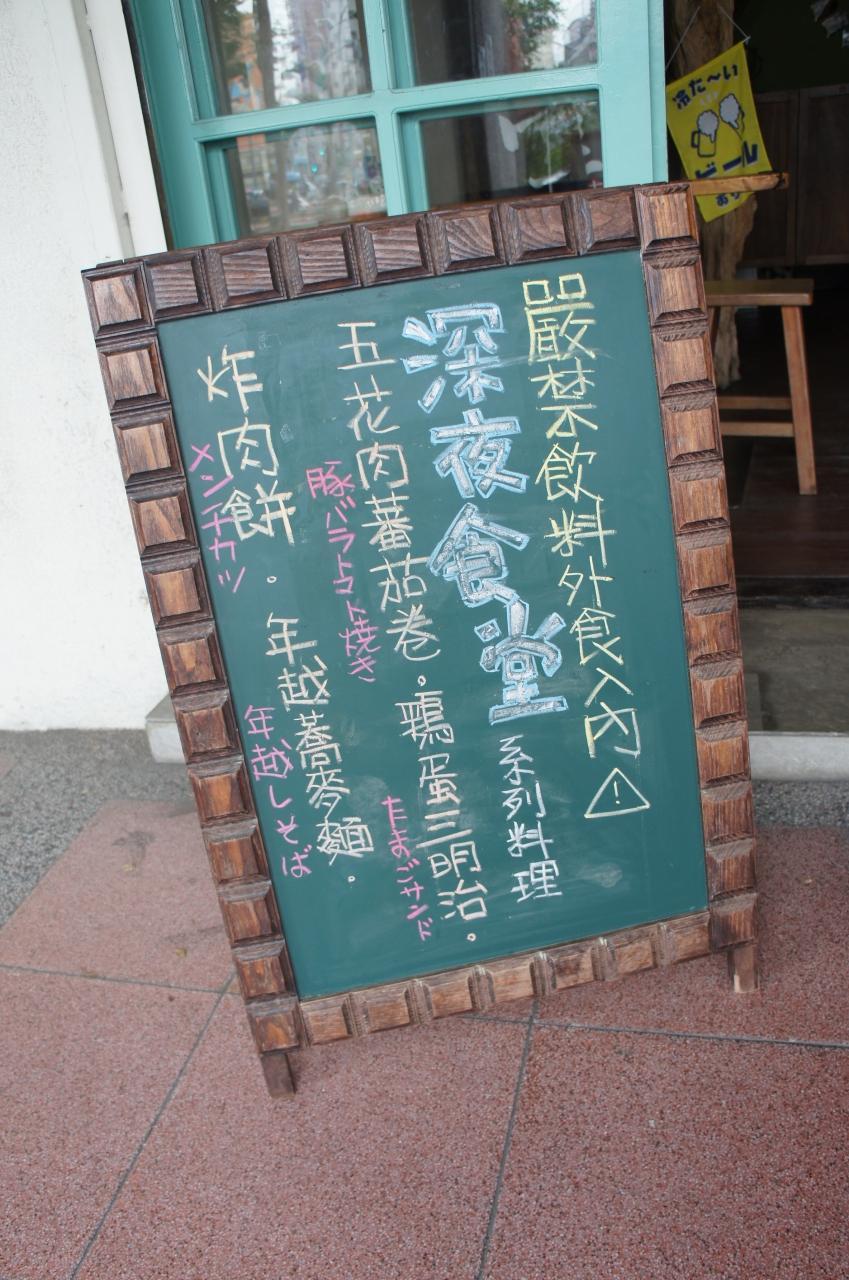 嚴禁飲料外食入內⚠
深夜食堂 系列料理
五花肉蕃茄卷。鶏蛋三明治。
豚バラトマト焼き
たまごサンド
炸肉餅。年越蕎麥麵。
メンチカツ
年越しそば
冷た〜い
ビール